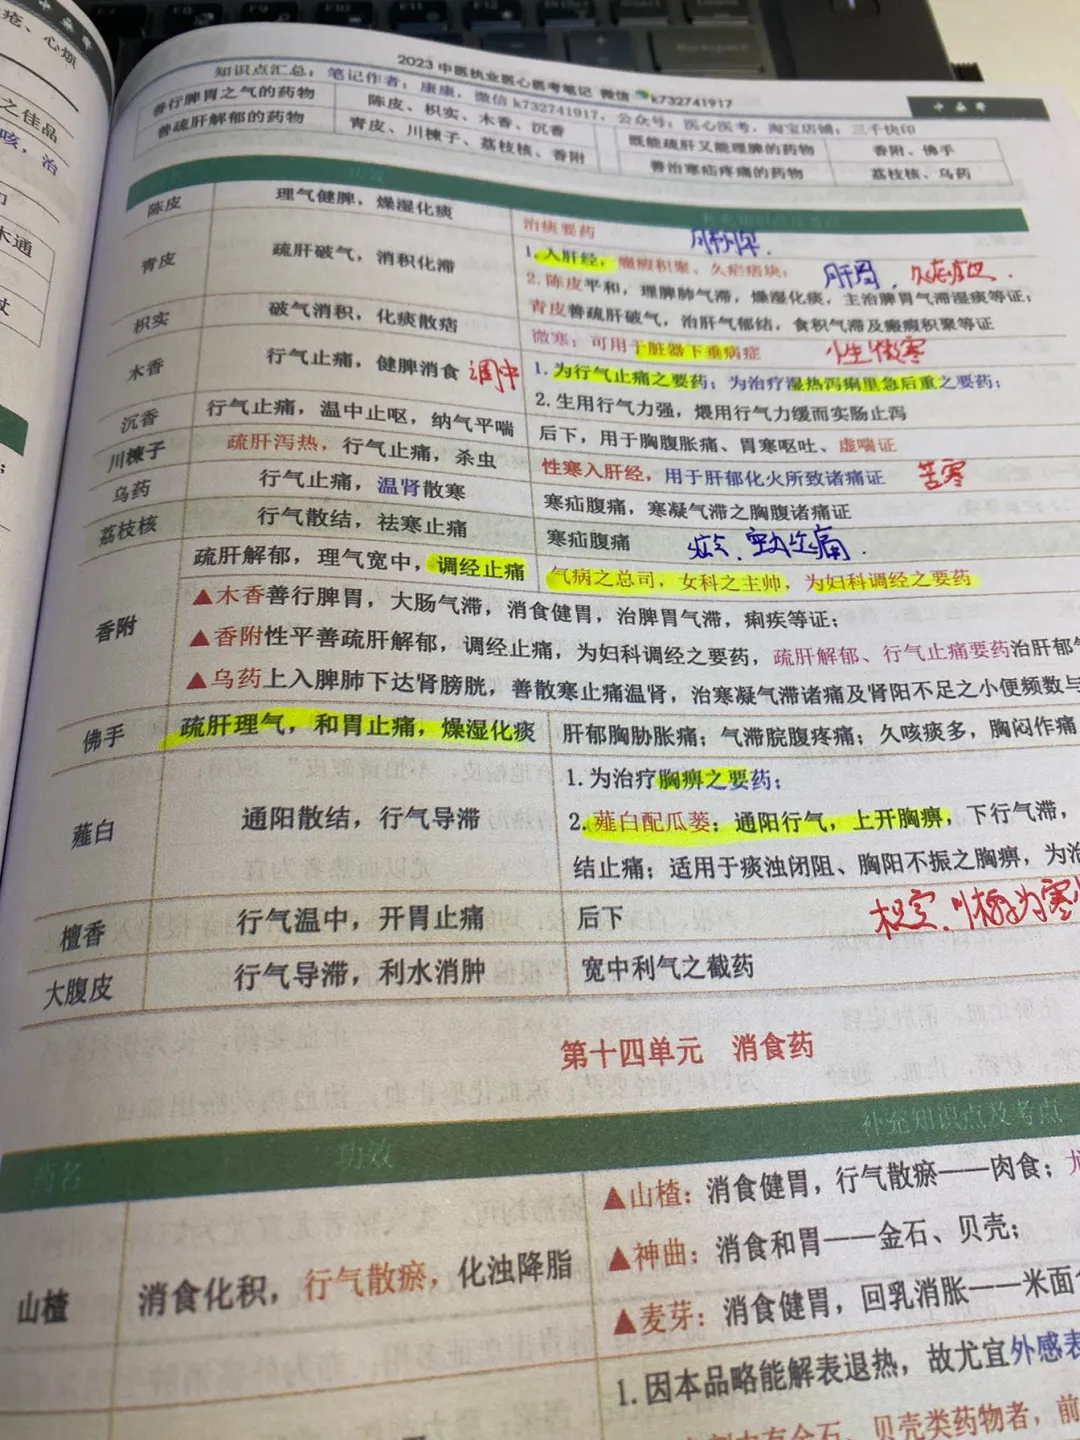 疮、心烦
之佳品
咳，治
木通
2023 中医执业医心医考笔记 微信 k732741917
知识点汇总；笔记作者：康康，微信 k732741917，公众号：医心医考，淘宝店铺：三千快印
善行脾胃之气的药物 陈皮、枳实、木香、沉香 既能疏肝又能理脾的药物 香附、佛手
善疏肝解郁的药物 青皮、川楝子、荔枝核、香附 善治寒疝疼痛的药物 荔枝核、乌药
陈皮 理气健脾，燥湿化痰 治痰要药
青皮 疏肝破气，消积化滞
1.入肝经，癥瘕积聚、久疟痞块；
2.陈皮平和，理脾肺气滞，燥湿化痰，主治脾胃气滞湿痰等证；
青皮善疏肝破气，治肝气郁结，食积气滞及癥瘕积聚等证
枳实 破气消积，化痰散痞 微寒；可用于脏器下垂病症
木香 行气止痛，健脾消食 调中
1.为行气止痛之要药；为治疗湿热泻痢里急后重之要药；
2.生用行气力强，煨用行气力缓而实肠止泻
沉香 行气止痛，温中止呕，纳气平喘 后下，用于胸腹胀痛、胃寒呕吐、虚喘证
川楝子 疏肝泻热，行气止痛，杀虫 性寒入肝经，用于肝郁化火所致诸痛证 苦寒
乌药 行气止痛，温肾散寒 寒疝腹痛，寒凝气滞之胸腹诸痛证
荔枝核 行气散结，祛寒止痛 寒疝腹痛
香附 疏肝解郁，理气宽中，调经止痛 气病之总司，女科之主帅，为妇科调经之要药
▲木香善行脾胃，大肠气滞，消食健胃，治脾胃气滞，痢疾等证；
▲香附性平善疏肝解郁，调经止痛，为妇科调经之要药，疏肝解郁、行气止痛要药治肝郁气
▲乌药上入脾肺下达肾膀胱，善散寒止痛温肾，治寒凝气滞诸痛及肾阳不足之小便频数与
佛手 疏肝理气，和胃止痛，燥湿化痰 肝郁胸胁胀痛；气滞脘腹疼痛；久咳痰多，胸闷作痛
薤白 通阳散结，行气导滞
1.为治疗胸痹之要药；
2.薤白配瓜蒌：通阳行气，上开胸痹，下行气滞，
结止痛；适用于痰浊闭阻、胸阳不振之胸痹，为治
檀香 行气温中，开胃止痛 后下
大腹皮 行气导滞，利水消肿 宽中利气之截药
第十四单元 消食药
药名 功效 补充知识点及考点
山楂 消食化积，行气散瘀，化浊降脂
▲山楂：消食健胃，行气散瘀——肉食；
▲神曲：消食和胃——金石、贝壳；
▲麦芽：消食健胃，回乳消胀——米面
1.因本品略能解表退热，故尤宜外感表
金石、贝壳类药物者，前